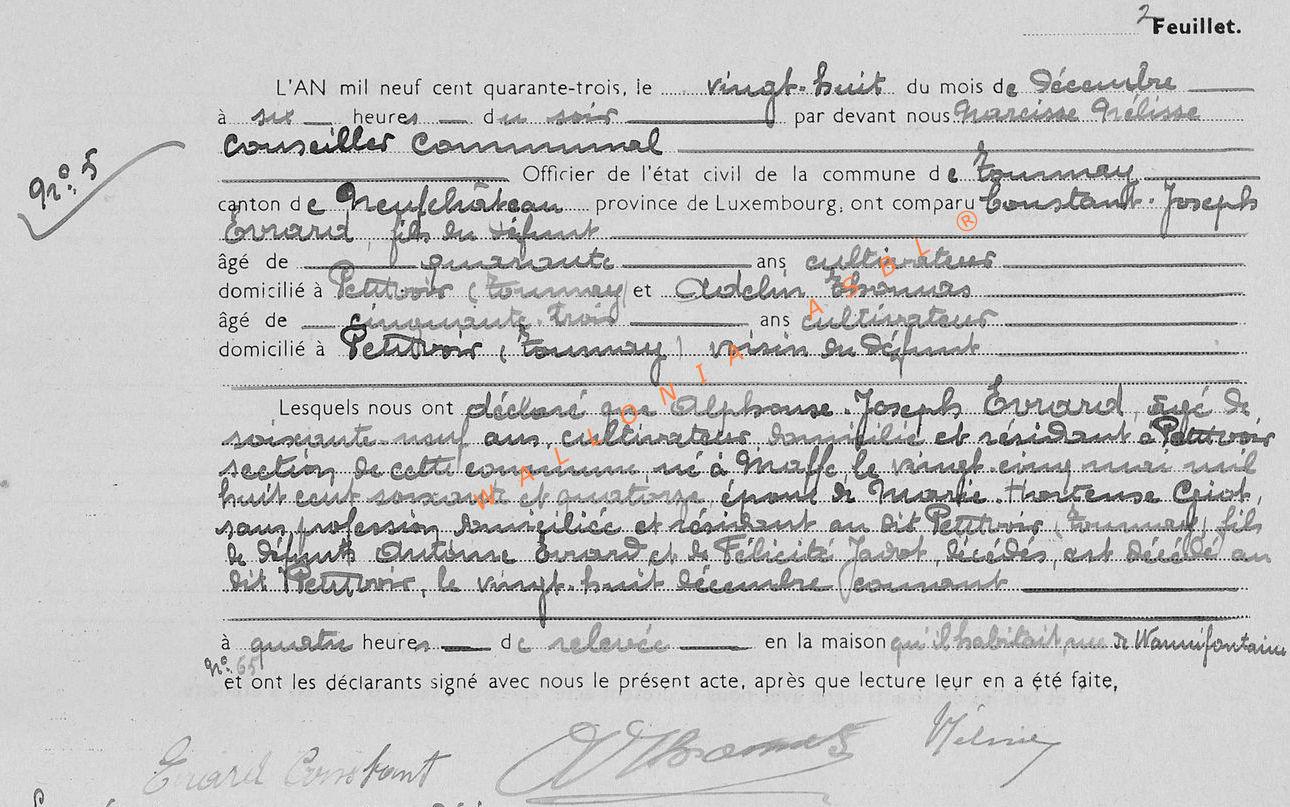 2 Feuillet.
L'AN mil neuf cent quarante-trois, le vingt-huit du mois de décembre
à six heures du soir par devant nous Narcisse Nélisse
Conseiller Communal
nº. 5
Officier de l'état civil de la commune de Tournay
canton de Neufchâteau province de Luxembourg, ont comparu Constant-Joseph
Evrard, fils du défunt
âgé de quarante ans cultivateur
domicilié à Petitvoir (Tournay) et Adelin Thomas
âgé de cinquante-trois ans cultivateur
domicilié à Petitvoir (Tournay) voisin du défunt
Lesquels nous ont déclaré que Alphonse-Joseph Evrard, âgé de
soixante-neuf ans, cultivateur domicilié et résidant à Petitvoir
section de cette commune né à Maffe le vingt-cinq mai mil
huit cent soixante et quatorze époux de Marie-Hortense Giot,
sans profession domiciliée et résidant au dit Petitvoir (Tournay) fils
de défunts Antoine Evrard et de Félicité Jadot, décédés, est décédé au
dit Petitvoir, le vingt-huit décembre courant
à quatre heures de relevée en la maison qu'il habitait rue de Warmifontaine
nº. 65
et ont les déclarants signé avec nous le présent acte, après que lecture leur en a été faite,
Evrard Constant Thomas
WALLONIA ASBL ®